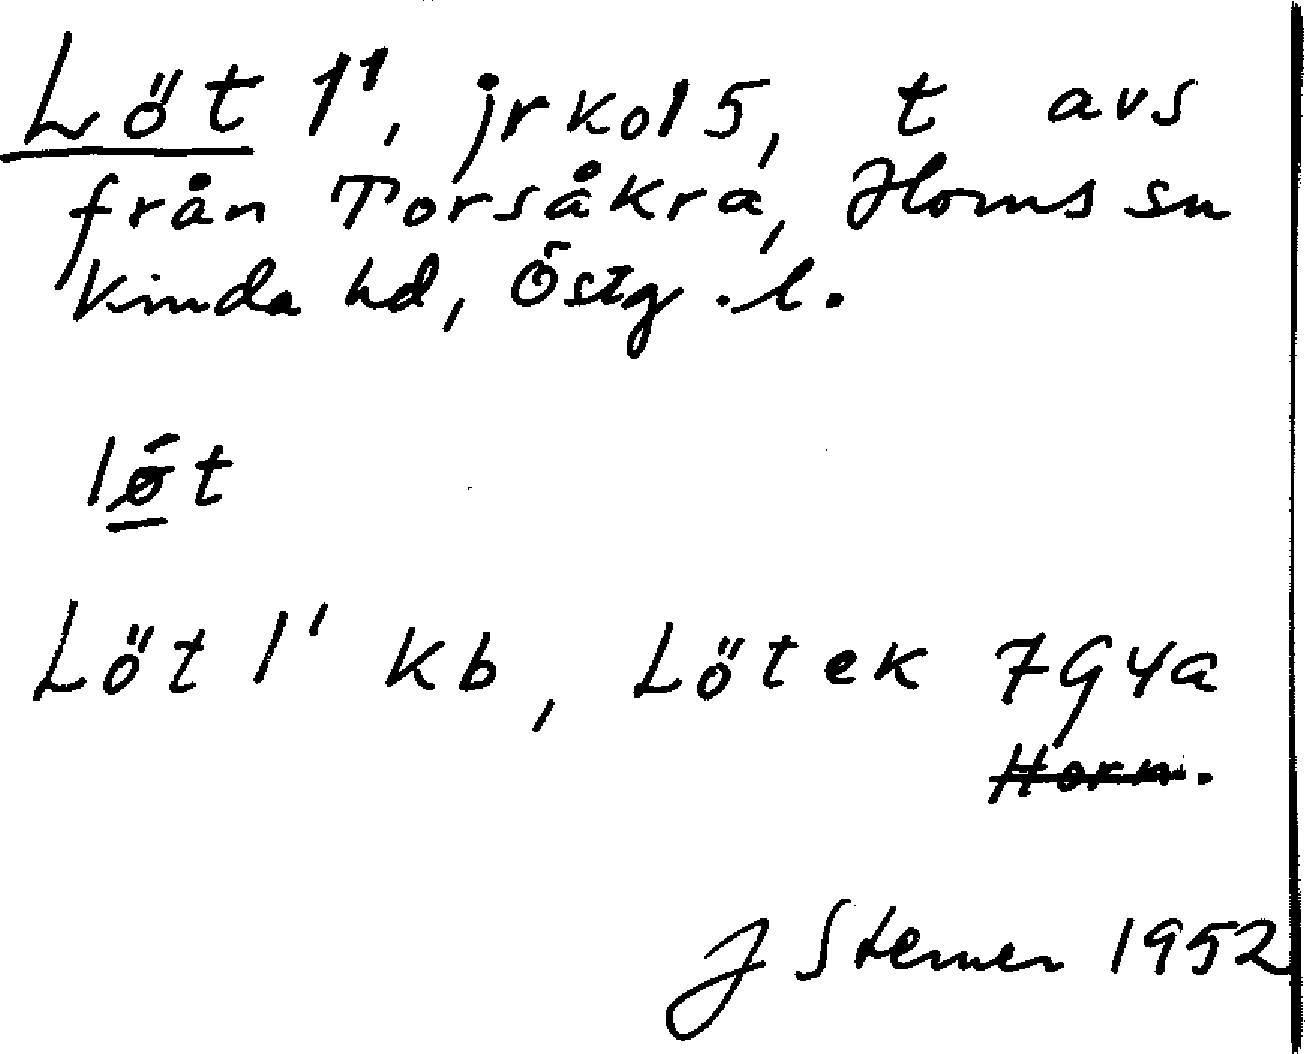 Löt 1¹, jrkol 5, t avs
från Torsåkra, Horns sn
Kinda hd, Östg.l.
lø̄́t
Löt 1¹ kb, Löt ek 7G4a
Horn.
J Sterner 1952